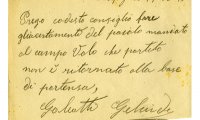 Prego codesto consiglio fare
gli accertamenti del piccolo mandato
al campo Volo che partito
non è ritornato alla base
di partenza,
Galeutti